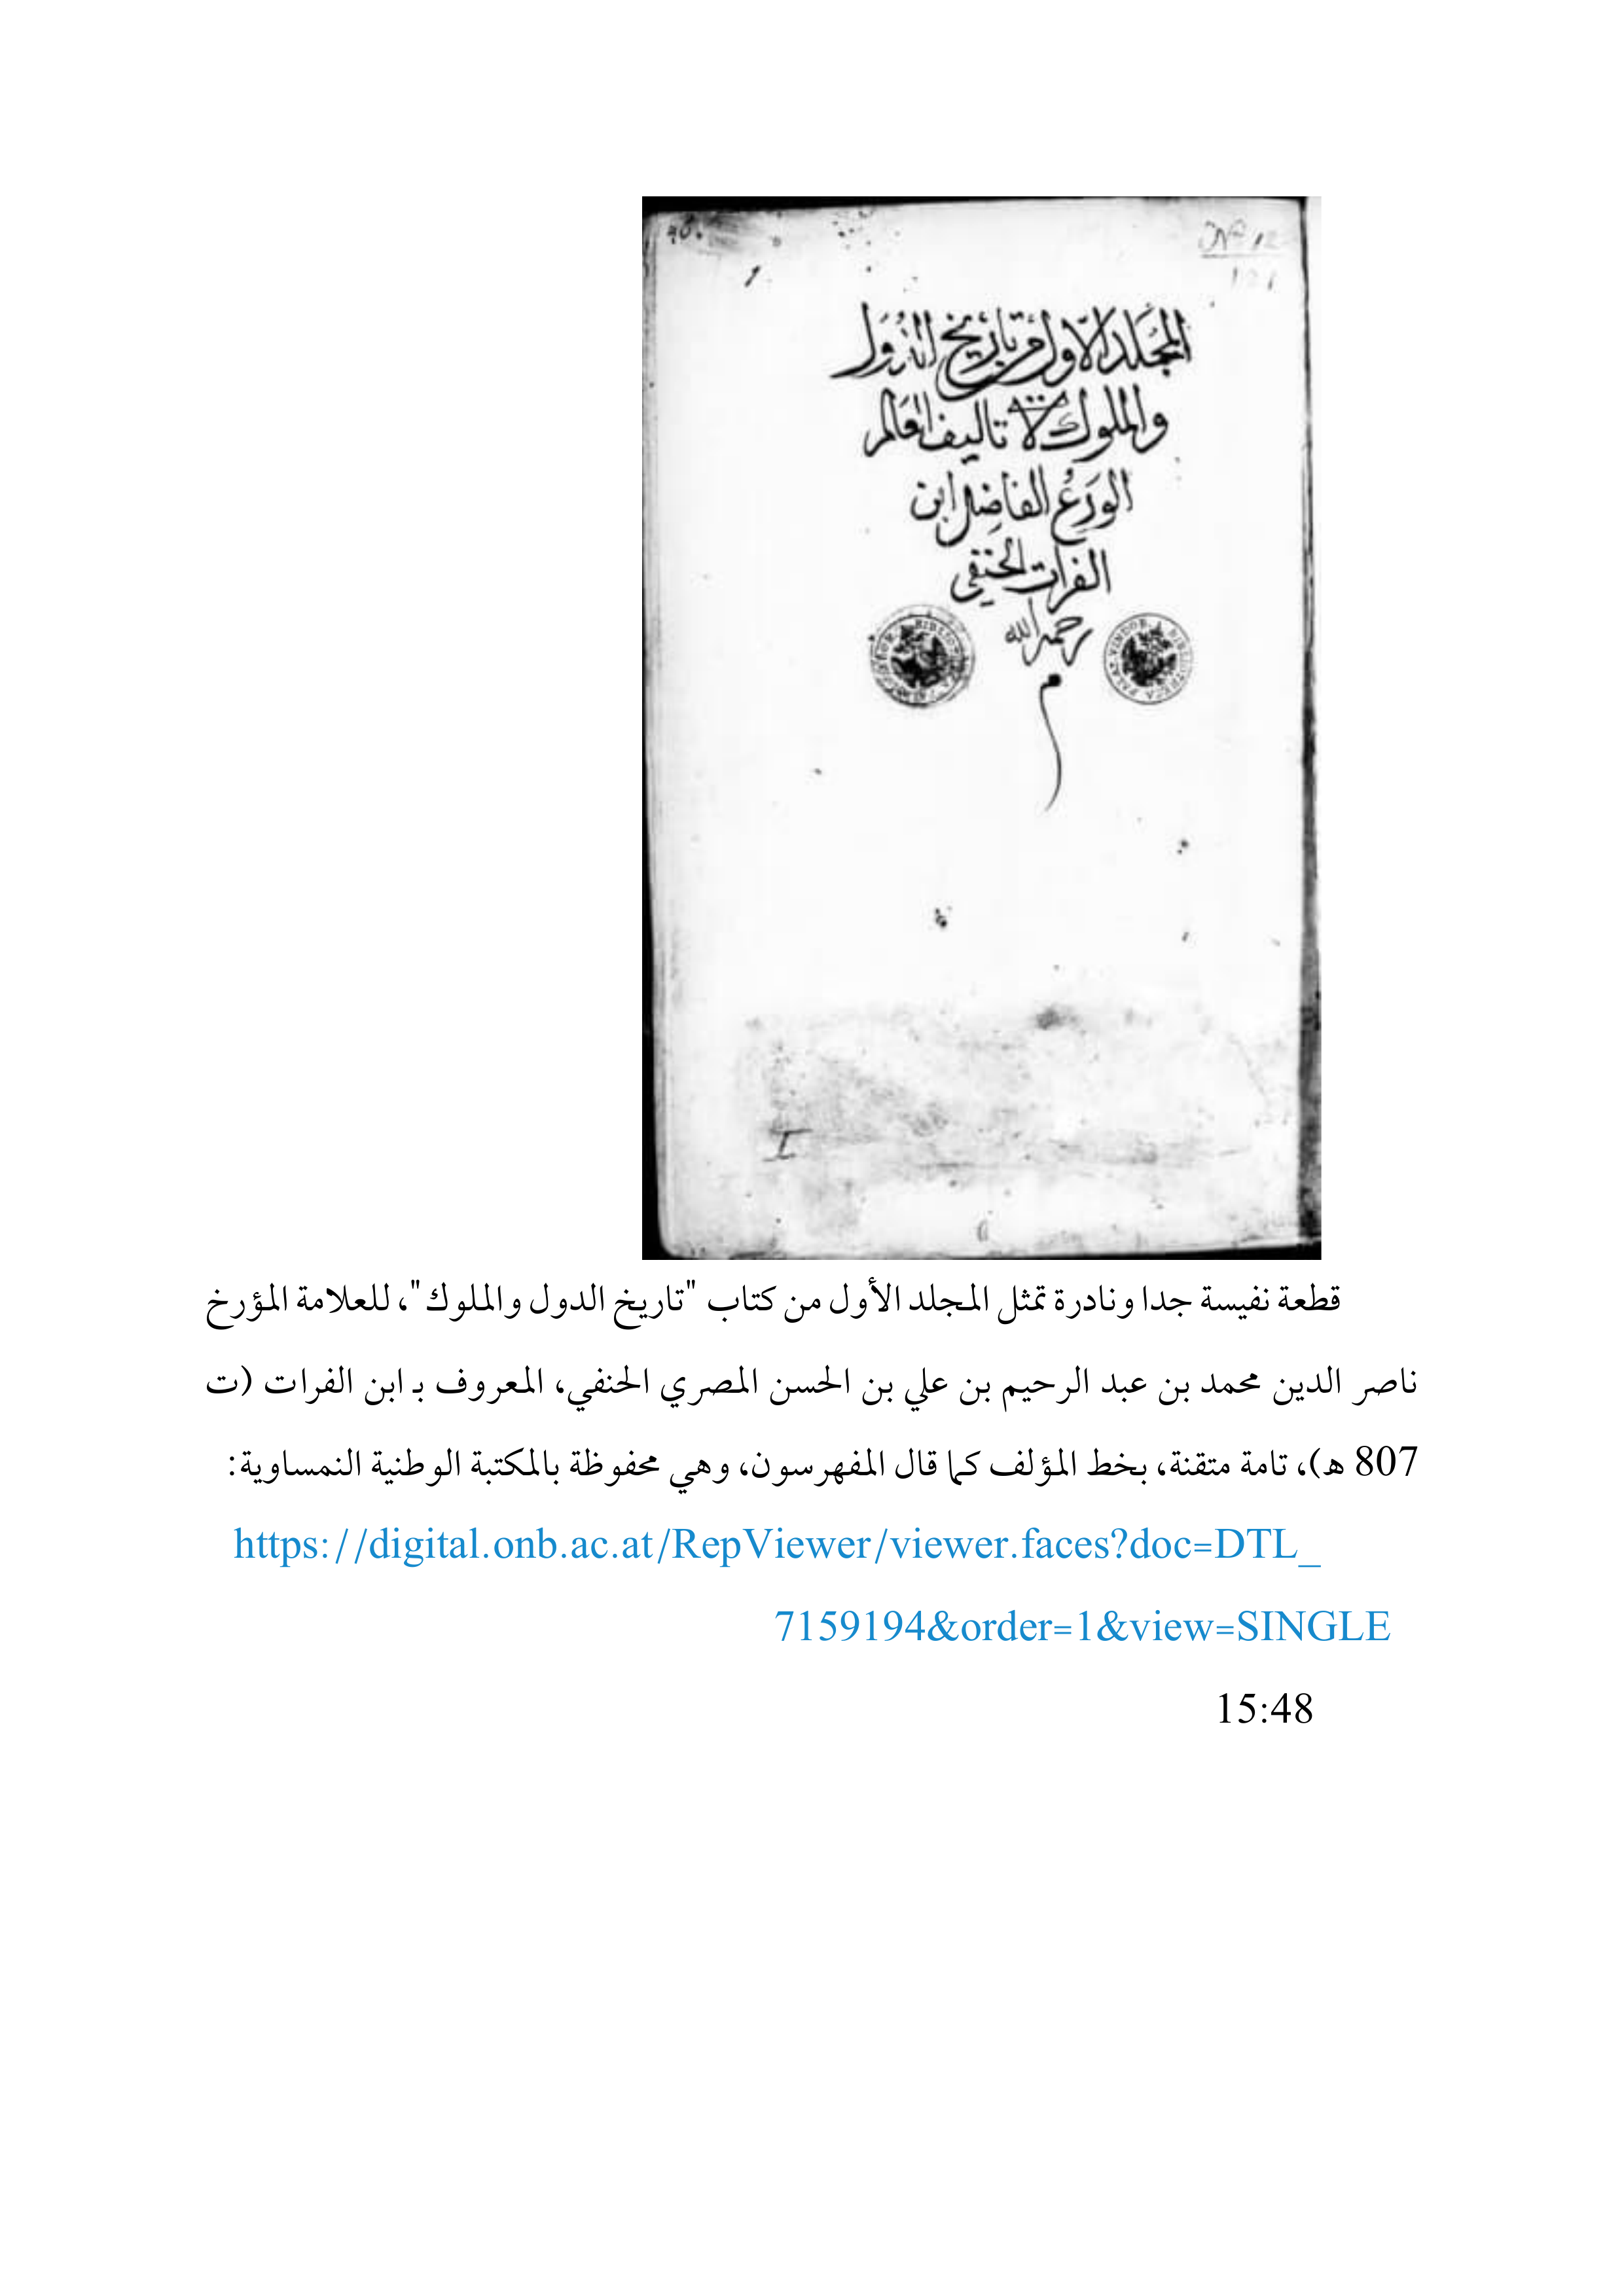 46.
No 12
1
المجَلد الاول من تاريخ الدُوَل
والملوك لا تاليف العَالم
الورَعُ الفاضِل ابن
الفرات الحنفِي
رحمه الله
م
I
قطعة نفيسة جدا ونادرة تمثل المجلد الأول من كتاب "تاريخ الدول والملوك"، للعلامة المؤرخ
ناصر الدين محمد بن عبد الرحيم بن علي بن الحسن المصري الحنفي، المعروف بـ ابن الفرات (ت
807 ه)، تامة متقنة، بخط المؤلف كما قال المفهرسون، وهي محفوظة بالمكتبة الوطنية النمساوية:
https://digital.onb.ac.at/RepViewer/viewer.faces?doc=DTL_
7159194&order=1&view=SINGLE
15:48